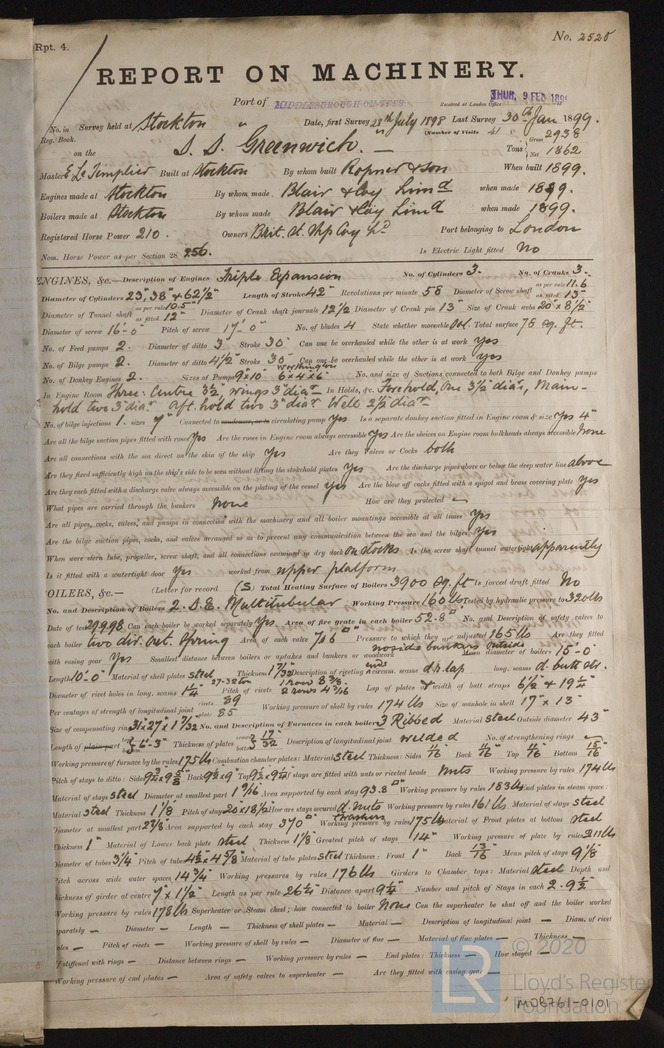 Rpt. 4.
No. 2525
REPORT ON MACHINERY.
Port of MIDDLESBROUGH-ON-TEES Received at London Office THUR, 9 FEB 189
No. in Survey held at Stockton Date, first Survey 28th July 1898 Last Survey 30th Jan 1899.
Reg. Book. (Number of Visits 41
on the S. S. Greenwich. Tons Gross 2938 Net 1862
Master E. Le Templier Built at Stockton By whom built Ropner & Son When built 1899.
Engines made at Stockton By whom made Blair & Coy Limd when made 1899.
Boilers made at Stockton By whom made Blair & Coy Limd when made 1899.
Registered Horse Power 210. Owners Brit. S. Ship Coy Ld Port belonging to London
Nom. Horse Power as per Section 28 256. Is Electric Light fitted No
ENGINES, &c.— Description of Engines Triple Expansion No. of Cylinders 3. No. of Cranks 3.
Diameter of Cylinders 23", 38" & 62½" Length of Stroke 42" Revolutions per minute 58 Diameter of Screw shaft as per rule 11.6 as fitted 13"
Diameter of Tunnel shaft as per rule 10.5" as fitted 12" Diameter of Crank shaft journals 12½ Diameter of Crank pin 13" Size of Crank webs 20" x 8½"
Diameter of screw 16'-0" Pitch of screw 17'-0" No. of blades 4 State whether moveable No. Total surface 75 sq. ft.
No. of Feed pumps 2. Diameter of ditto 3 Stroke 30" Can one be overhauled while the other is at work Yes
No. of Bilge pumps 2. Diameter of ditto 4½ Stroke 30" Can one be overhauled while the other is at work Yes
No. of Donkey Engines 2. Sizes of Pumps 9 x 10" Worthington 6 x 4 x 6" No. and size of Suctions connected to both Bilge and Donkey pumps
In Engine Room Three. Centre 3½", wings 3" diar In Holds, &c. Forehold, One 3½" diar, Main-
hold two 3" diar. Aft. hold two 3" diar Well 2½" diar
No. of bilge injections 1. sizes 7" Connected to circulating pump Yes Is a separate donkey suction fitted in Engine room & size Yes 4"
Are all the bilge suction pipes fitted with roses Yes Are the roses in Engine room always accessible Yes Are the sluices on Engine room bulkheads always accessible None
Are all connections with the sea direct on the skin of the ship Yes Are they Valves or Cocks both
Are they fixed sufficiently high on the ship's side to be seen without lifting the stokehold plates Yes Are the discharge pipes above or below the deep water line above
Are they each fitted with a discharge valve always accessible on the plating of the vessel Yes Are the blow off cocks fitted with a spigot and brass covering plate Yes
What pipes are carried through the bunkers None How are they protected —
Are all pipes, cocks, valves, and pumps in connection with the machinery and all boiler mountings accessible at all times Yes
Are the bilge suction pipes, cocks, and valves arranged so as to prevent any communication between the sea and the bilges Yes
When were stern tube, propeller, screw shaft, and all connections examined in dry dock on stocks Is the screw shaft tunnel watertight apparently
Is it fitted with a watertight door Yes worked from upper platform
BOILERS, &c.— (Letter for record (S) Total Heating Surface of Boilers 3900 sq. ft Is forced draft fitted No
No. and Description of Boilers 2. S.E. Multitubular Working Pressure 160 lb Tested by hydraulic pressure to 320 lbs
Date of test 29.9.98 Can each boiler be worked separately Yes. Area of fire grate in each boiler 52.8 □' No. and Description of safety valves to
each boiler two dir. act. Spring Area of each valve 7.06 □" Pressure to which they are adjusted 165 lb Are they fitted
with easing gear Yes Smallest distance between boilers or uptakes and bunkers or woodwork no side bunkers diameter of boilers 15'-0"
Length 10'-0" Material of shell plates steel Thickness 1 7/32 Description of riveting: circum. seams ends d.h. lap long. seams d. butt str.
Diameter of rivet holes in long. seams 1¼" Pitch of rivets Lap of plates & width of butt straps 6½" & 19¼"
Per centages of strength of longitudinal joint rivets 89 plate 85 Working pressure of shell by rules 174 lb Size of manhole in shell 17" x 13"
Size of compensating ring 31 x 27 x 1 7/32 No. and Description of Furnaces in each boiler 3 Ribbed Material steel Outside diameter 43"
Length of part 6'-3" Thickness of plates 17/32 Description of longitudinal joint welded No. of strengthening rings —
Working pressure of furnace by the rules 175 lb Combustion chamber plates: Material Steel Thickness: Sides 11/16 Back 11/16 Top 11/16 Bottom 15/16
Pitch of stays to ditto: Sides Back Top If stays are fitted with nuts or riveted heads Nuts Working pressure by rules 174 lb
Material of stays steel Diameter at smallest part 1 7/16 Area supported by each stay 93.8 □" Working pressure by rules 183 lb End plates in steam space:
Material steel Thickness 1⅛ Pitch of stays 20" x 18½ How are stays secured d. nuts & washers Working pressure by rules 161 lb Material of stays steel
Diameter at smallest part 2⅞ Area supported by each stay 370 □" Working pressure by rules 175 lb Material of Front plates at bottom steel
Thickness 1" Material of Lower back plate steel Thickness 1⅛ Greatest pitch of stays 14" Working pressure of plate by rules 211 lb
Diameter of tubes 3¼ Pitch of tubes 4½ x 4⅝ Material of tube plates steel Thickness: Front 1" Back 13/16 Mean pitch of stays 9⅛
Pitch across wide water spaces 14¾" Working pressures by rules 176 lb Girders to Chamber tops: Material steel Depth and
thickness of girder at centre 7" x 1½" Length as per rule 26¼" Distance apart 9¼ Number and pitch of Stays in each 2 - 9½"
Working pressure by rules 178 lb Superheater or Steam chest; how connected to boiler None Can the superheater be shut off and the boiler worked
separately — Diameter — Length — Thickness of shell plates — Material — Description of longitudinal joint — Diam. of rivet
holes — Pitch of rivets — Working pressure of shell by rules — Diameter of flue — Material of flue plates — Thickness —
If stiffened with rings — Distance between rings — Working pressure by rules — End plates: Thickness — How stayed —
Working pressure of end plates — Area of safety valves to superheater — Are they fitted with easing gear —
LR © 2020
Lloyd's Register
Foundation
MDB761-0101